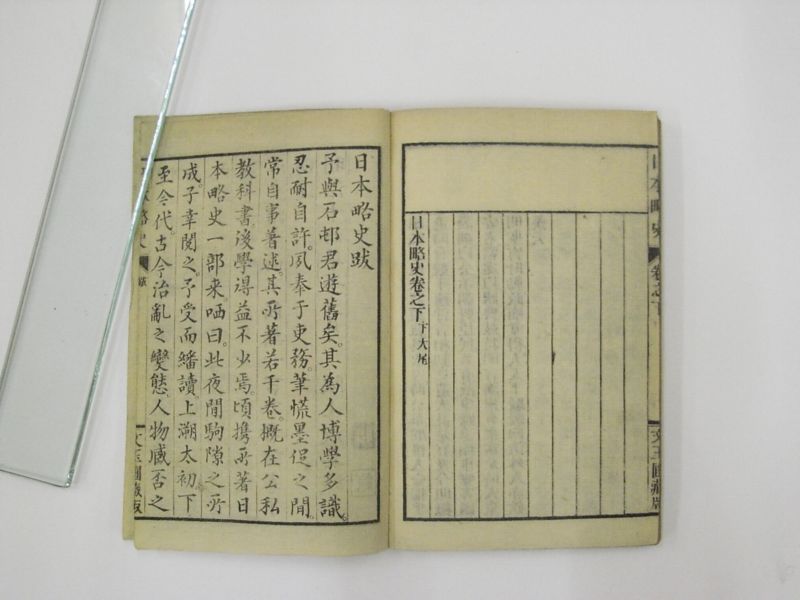 日本略史　卷之下　文玉圃藏版
日本略史卷之下 下大尾
日本略史跋
予與石邨君遊舊矣。其為人博學多識。
忍耐自許。夙奉于吏務。筆慌墨促之閒。
常自事著述。其所著若干卷。概在公私
教科書。後學得益不少焉。頃携所著日
本略史一部来哂曰。此夜閒駒隙之所
成。子幸閲之。予受而繙讀。上溯太初下
至今代古今治亂之變態。人物臧否之
略史　跋　文玉圃藏版